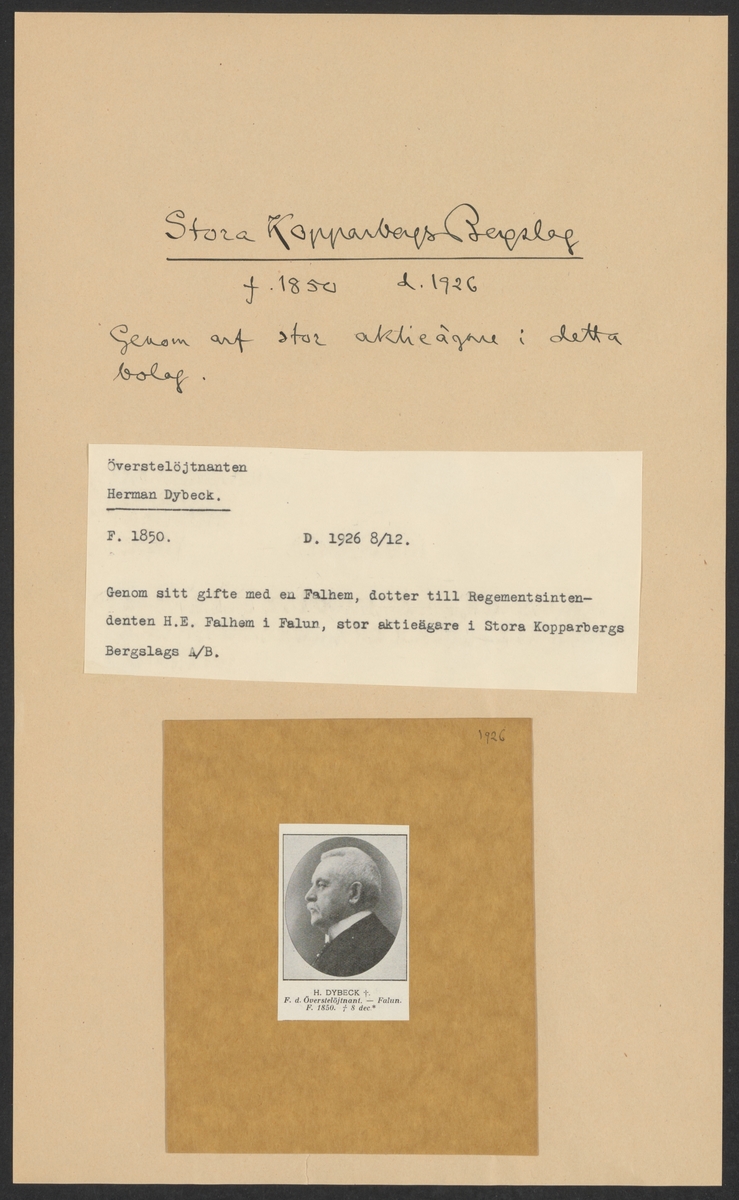 Stora Kopparbergs Bergslag
f. 1850 d. 1926
Genom arf stor aktieägare i detta
bolag.
Överstelöjtnanten
Herman Dybeck.
F. 1850. D. 1926 8/12.
Genom sitt gifte med en Falhem, dotter till Regementsinten-
denten H.E. Falhem i Falun, stor aktieägare i Stora Kopparbergs
Bergslags A/B.
1926
H. DYBECK †.
F. d. Överstelöjtnant. — Falun.
F. 1850. † 8 dec*